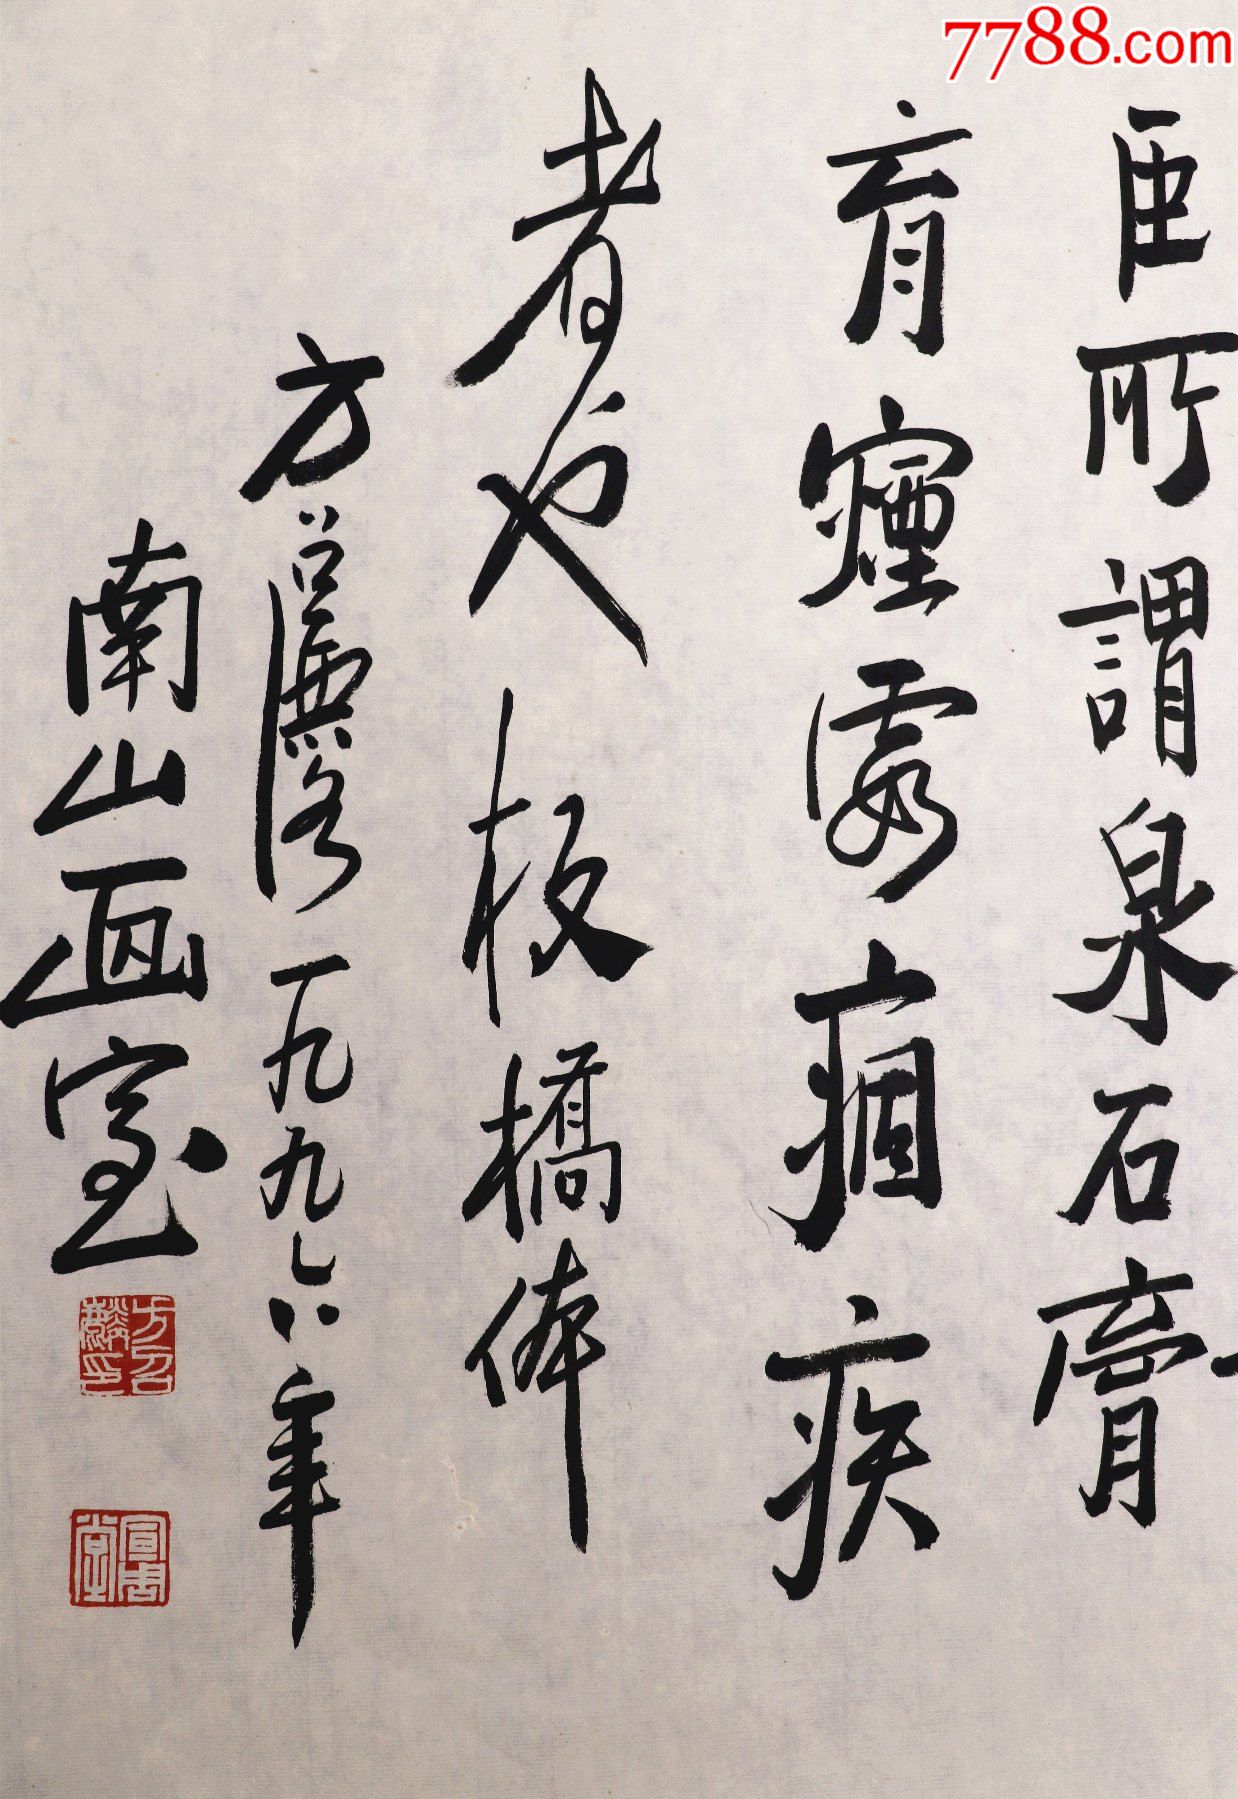 7788.com
臣所謂泉石膏
肓煙霞痼疾
者也 板橋体
方召麐 一九九六年
南山画室
方召麐印